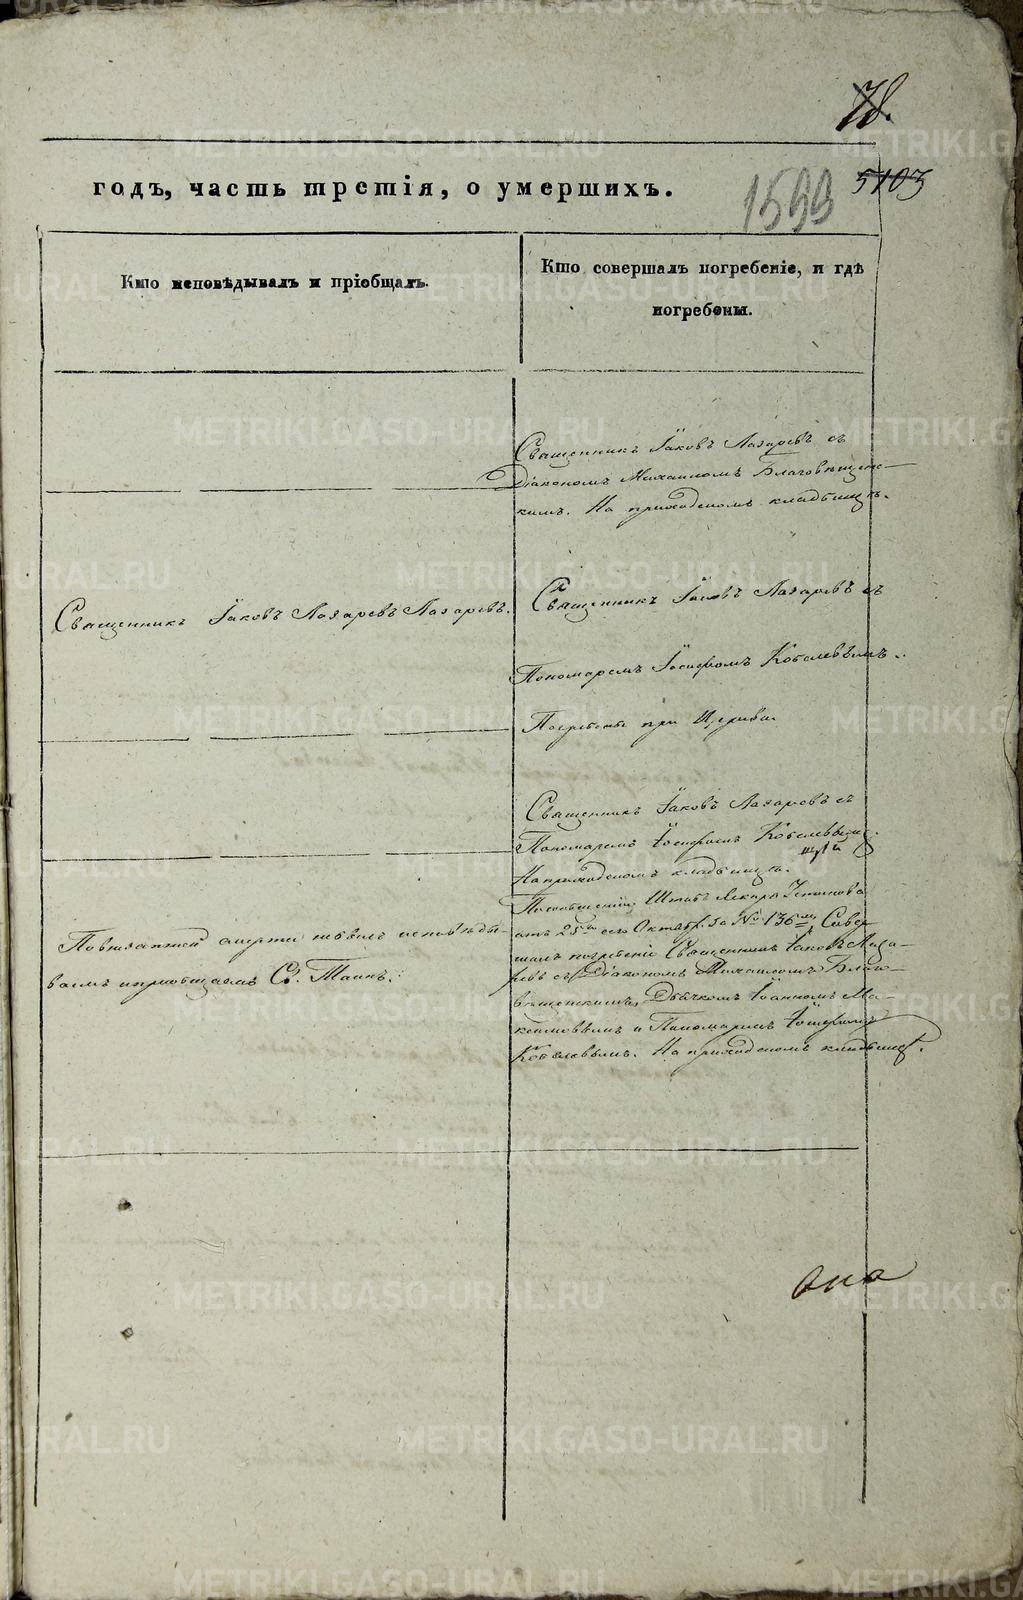 78.
5103
годъ, часть третія, о умершихъ.
1599
Кто исповѣдывалъ и пріобщалъ.
Кто совершалъ погребеніе, и гдѣ
погребены.
Священникъ Іаковъ Лазаревъ съ
Діакономъ Михаиломъ Благовѣщенс-
кимъ. На приходскомъ кладбищѣ.
Священникъ Іаковъ Лазаревъ Лазаревъ.
Священникъ Іаковъ Лазаревъ съ
Пономаремъ Іосифомъ Кобелевымъ.
Погребенъ при Церкви.
Священникъ Іаковъ Лазаревъ съ
Пономаремъ Іосифомъ Кобелевымъ.
На приходскомъ кладбищѣ.
По внезапной смерти небылъ исповѣды-
ваемъ и пріобщаемъ Св. Таинъ.
По сообщенію Штабъ Лекаря
отъ 25го Октября за № 136мъ Совер-
шалъ погребеніе Священникъ Іаковъ Лаза-
ревъ съ Діакономъ Михаиломъ Благо-
вѣщенскимъ, Дьячкомъ Іоанномъ Ма-
ксимовымъ и Пономаремъ Іосифомъ
Кобелевымъ. На приходскомъ кладбищѣ.
METRIKI.GASO-URAL.RU